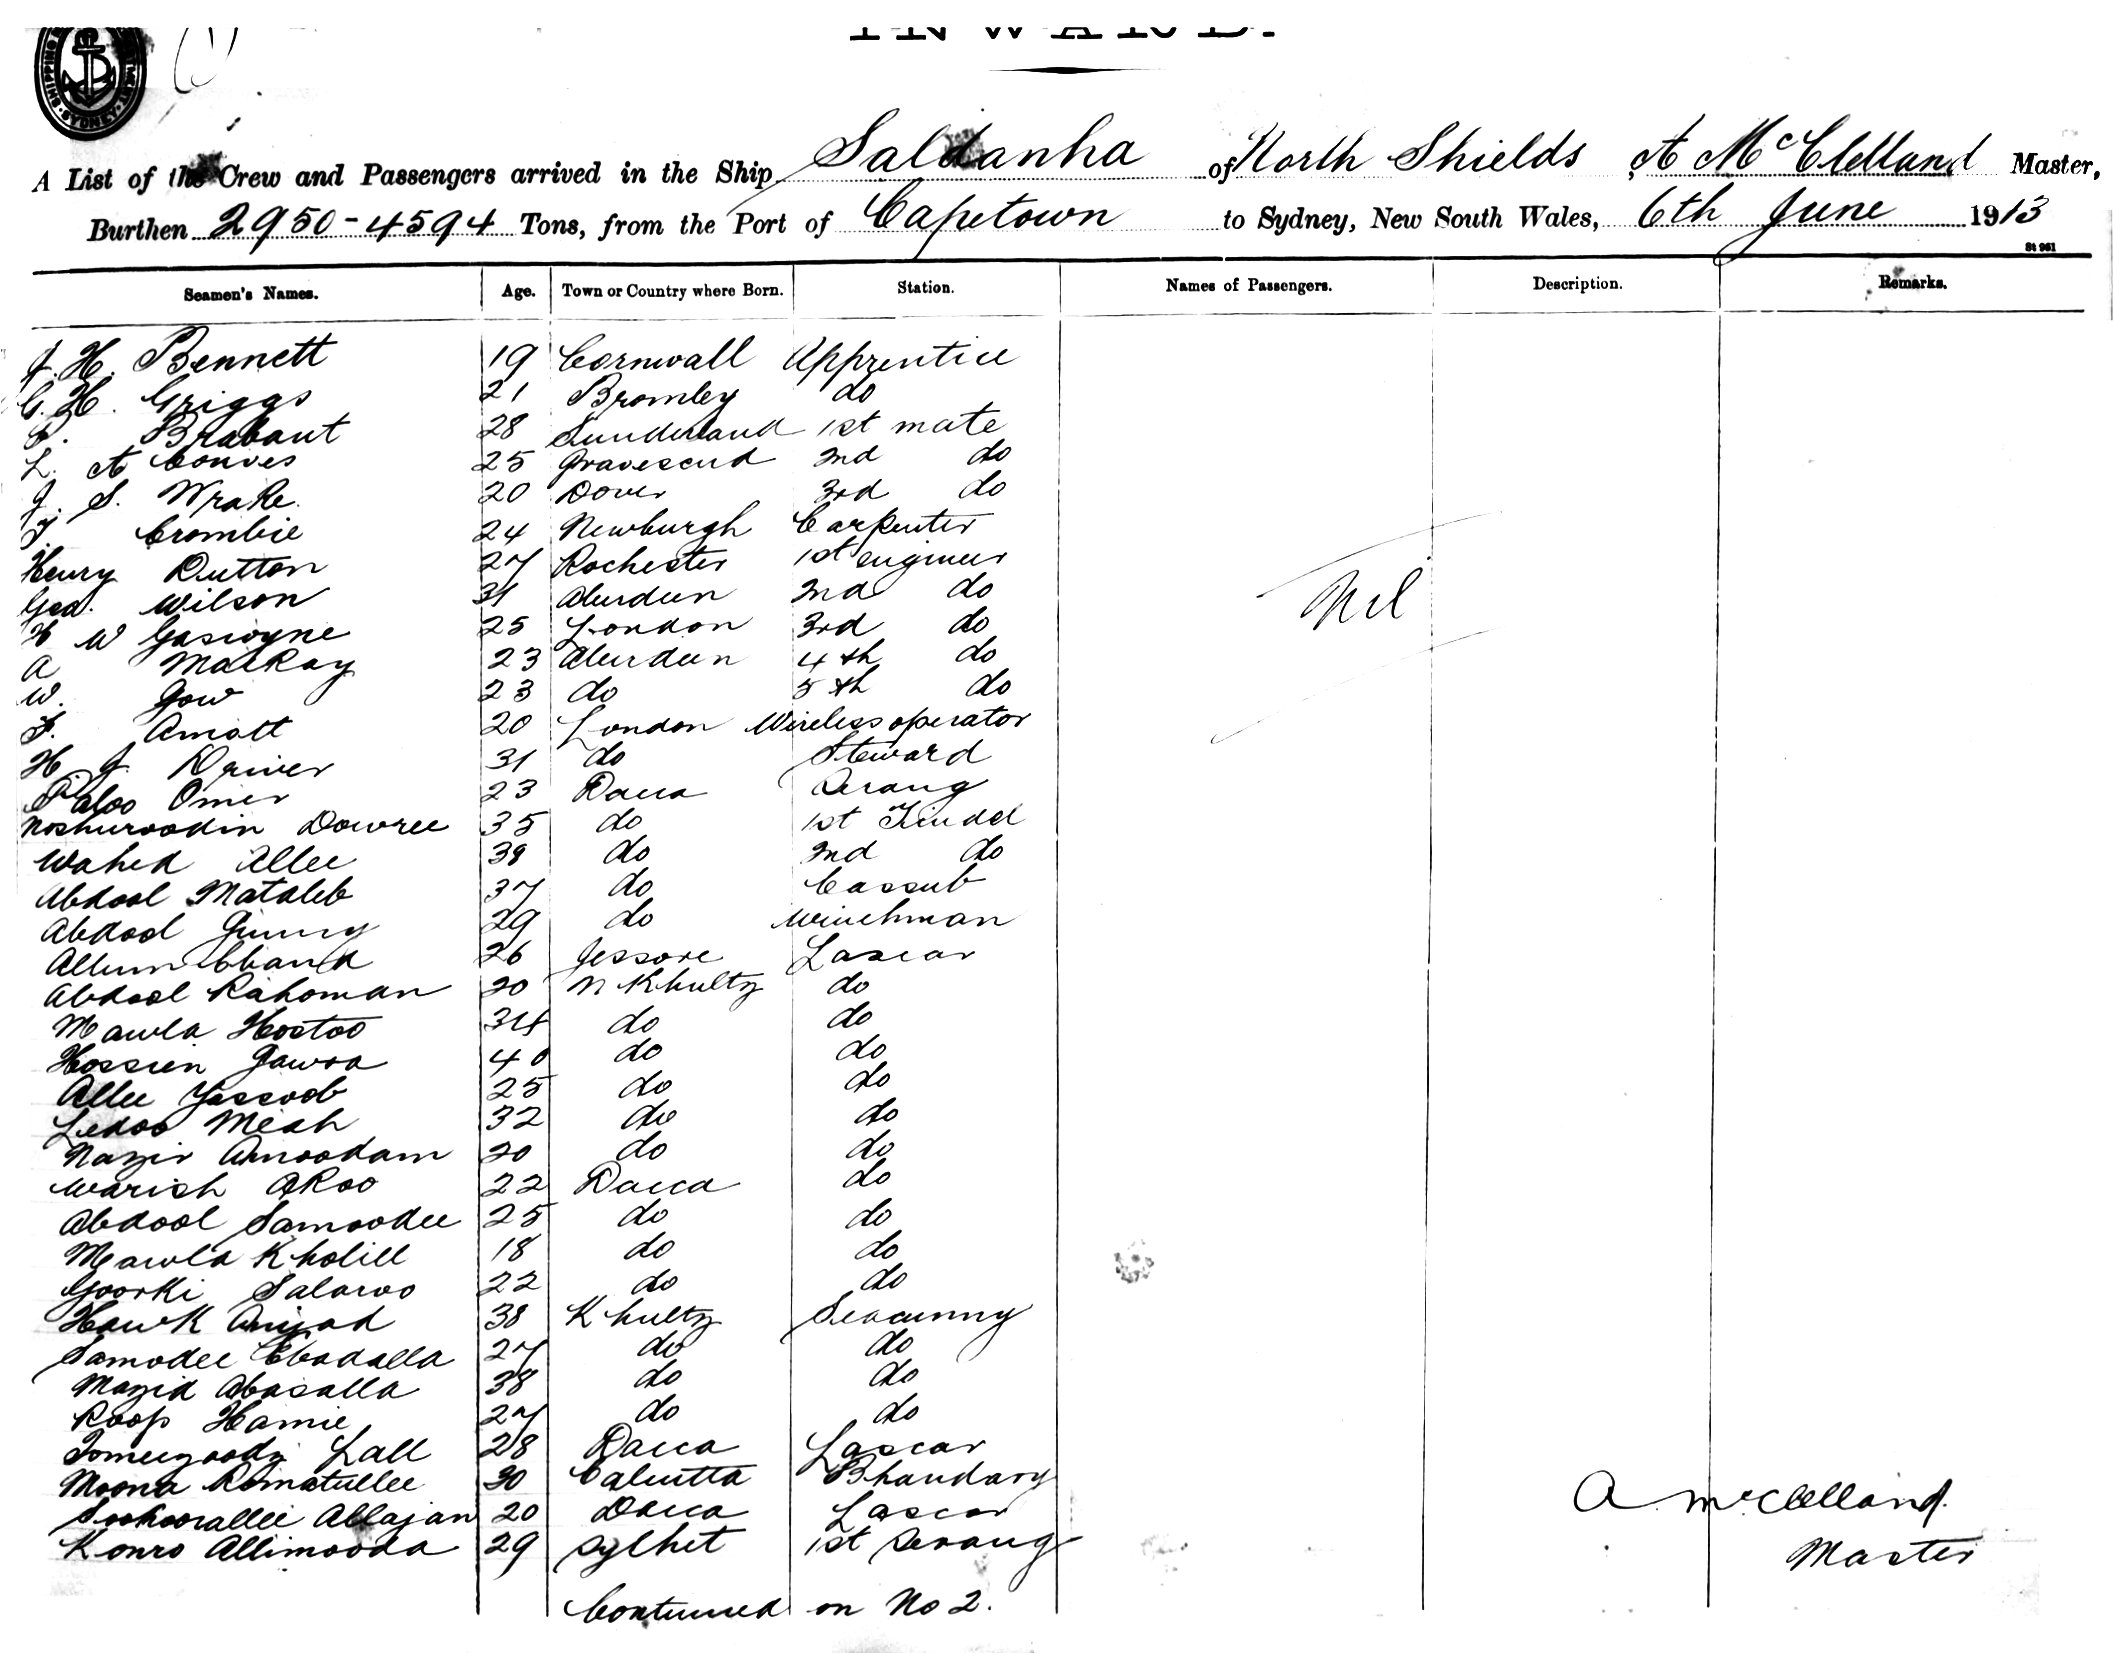 INWARD.
SHIPPING
SYDNEY
A List of the Crew and Passengers arrived in the Ship Saldanha of North Shields A McClelland Master,
Burthen 2950-4594 Tons, from the Port of Capetown to Sydney, New South Wales, 6th June 1913
St 961
Seamen's Names. Age. Town or Country where Born. Station. Names of Passengers. Description. Remarks.
J. H. Bennett 19 Cornwall Apprentice
G. H. Griggs 21 Bromley do
P. Brabant 28 Sunderland 1st mate
L. A Conves 25 Gravesend 2nd do
J. S. Wrake 20 Dover 3rd do
J. Crombie 24 Newburgh Carpenter
Henry Dutton 27 Rochester 1st engineer
Geo. Wilson 31 Aberdeen 2nd do
Nil
H W Gascoyne 25 London 3rd do
A MacKay 23 Aberdeen 4th do
W. Gow 23 do 5th do
F. Amott 20 London Wireless operator
H J. Driver 31 do Steward
Faloo Omer 23 Dacca Serang
Noshuroodin Dowree 35 do 1st Tindal
Wahed Allee 39 do 2nd do
Abdool Mataleb 37 do Cassub
Abdool Gunny 29 do Winchman
Allum Chand 26 Jessore Lascar
Abdool Rahoman 20 N Khulty do
Mawla Hostoo 34 do do
Hossien Gawra 40 do do
Allee Yassoob 25 do do
Ledoo Meah 32 do do
Nazir Amoodam 20 do do
Warish Akoo 22 Dacca do
Abdool Samoodee 25 do do
Mawla Kholill 18 do do
Goorki Salaroo 22 do do
Hawk Amjad 38 Khulty Seacunny
Samodee Ebadalla 27 do do
Mazid Abasalla 38 do do
Roop Hamie 27 do do
Lall 28 Dacca Lascar
Moona Romatullee 30 Calcutta Bhandary
Sookoorallee Allajan 20 Dacca Lascar
A. McClelland.
Konro Allimooda 29 Sylhet 1st Serang
Master
Continued on No 2.